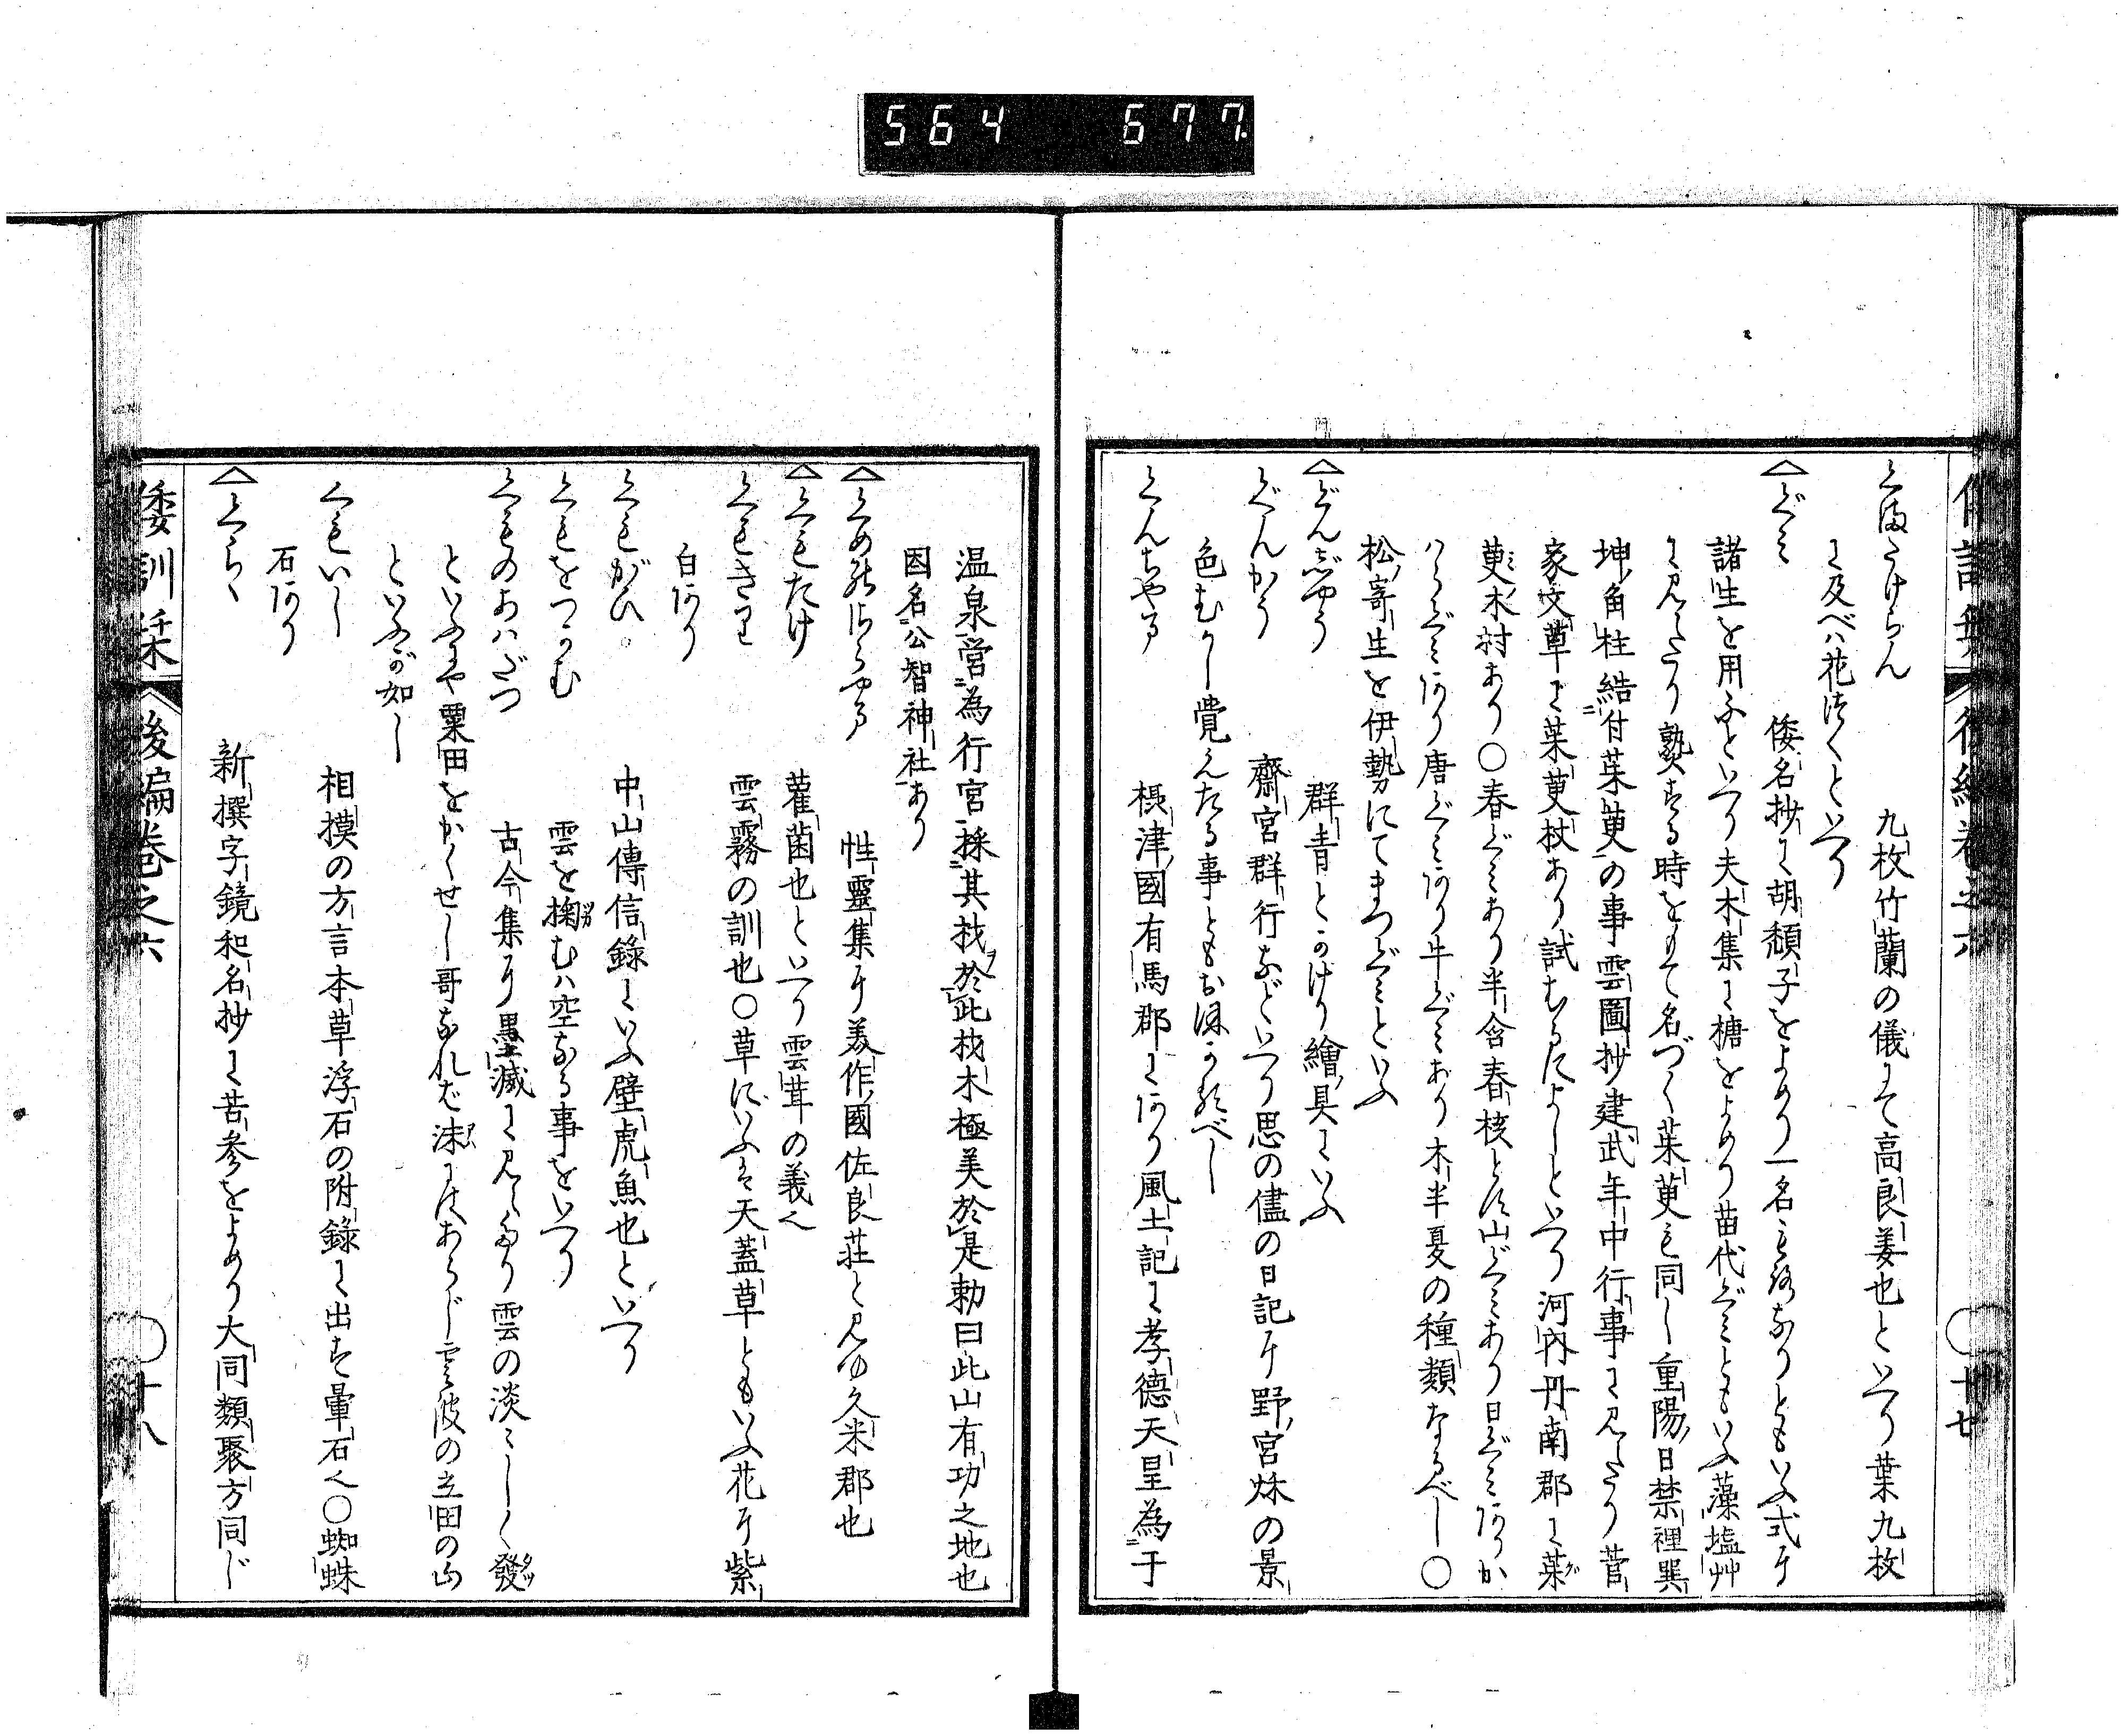 564 677
くまたけらん 九枚竹蘭の儀にて高良姜也といへり葉九枚
に及べハ花咲くといへり
ぐミ 倭名抄に胡頽子をよめり一名もろなりともいふ式に
諸生を用ふといへり夫木集に槠をよめり苗代ぐミともいふ藻塩艸
に見えたり熟する時をもて名づく茱萸も同し重陽ノ日禁裡巽
坤ノ角ノ柱結付茱萸の事雲圖抄建武年中行事に見えたり菅
家文草に茱萸杖あり試むるによしといへり河内丹南郡に茱
萸木村あり〇春ぐミあり半含春核とす山ぐミあり日ぐミありか
ハらぐミあり唐ぐミあり牛ぐミあり木半夏の種類なるべし〇
松ノ寄生を伊勢にてまつぐミといふ
ぐんじやう 群青とかけり繪ノ具にいふ
ぐんかう 齋宮群行などいへり思の儘の日記に野ノ宮秌の景
色むかし覚えたる事ともおほかるべし
くんちやる 摂津ノ國有馬郡にあり風土記に孝徳天皇為于
温泉営為行宮採其材於此材木極美於是勅曰此山有功之地也
因名公智神社あり
くめのさらやま 性靈集に美作ノ國佐良荘と見ゆ久米郡也
くもたけ 雚菌也といへり雲茸の義也
くもきり 雲霧の訓也〇草にいふは天蓋草ともいふ花に紫
白あり
くもがひ 中山傳信錄にいふ壁虎魚也といへり
くもをつかむ 雲を掬むハ空なる事をいへり
くものあハだつ 古今集ノ墨滅に見えたり雲の淡ミしく發
といふや粟田をかくせし哥なれば沫にはあらじ雲波の立田の山
といふが如し
くもいし 相摸の方言本草浮石の附錄に出す暈石也〇蜘蛛
石あり
くらゝ 新撰字鏡和名抄に苦参をよめり大同類聚方同じ
倭訓栞 後編巻之六 〇十八